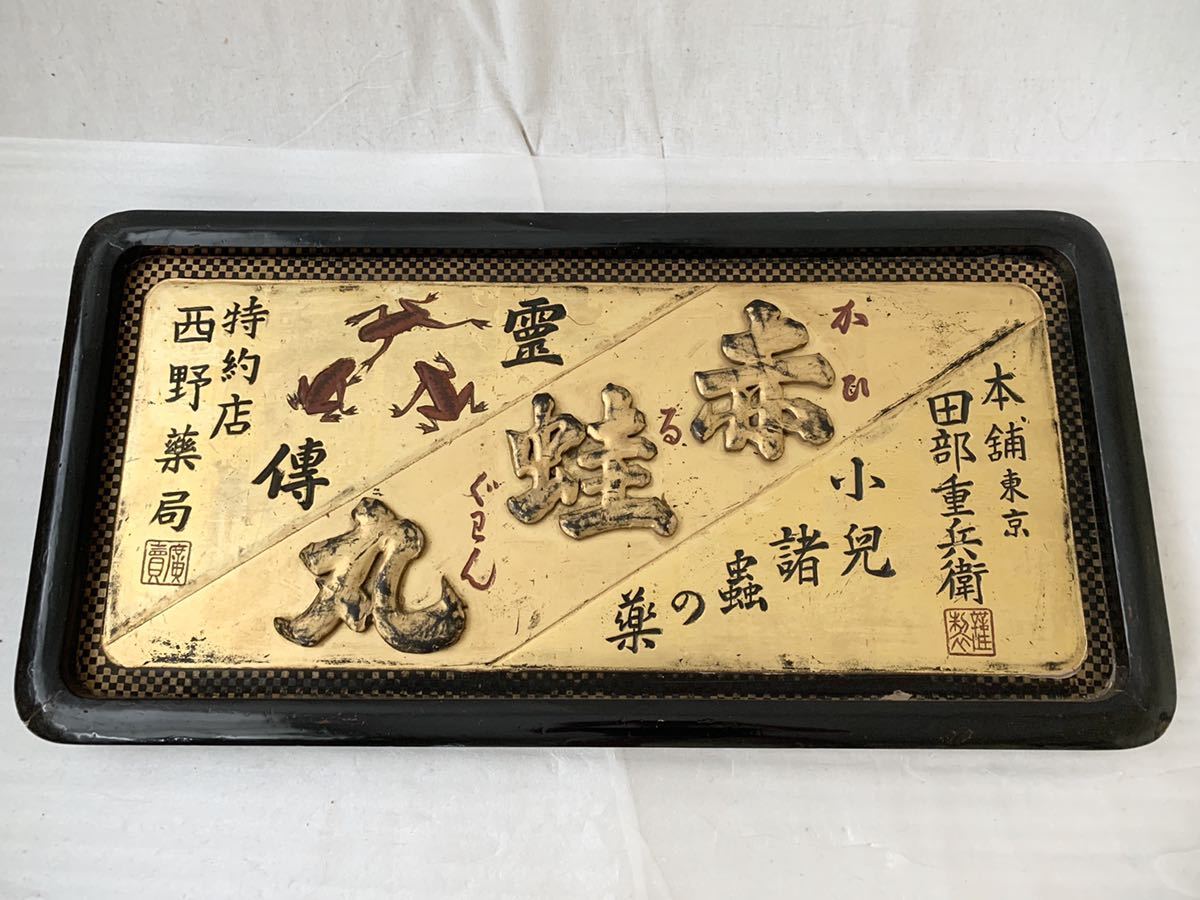 本舗東京
田部重兵衛
謹製
小兒
諸
蟲
の
藥
赤蛙丸
かひるぐわん
靈傳
特約店
西野藥局
廣賣